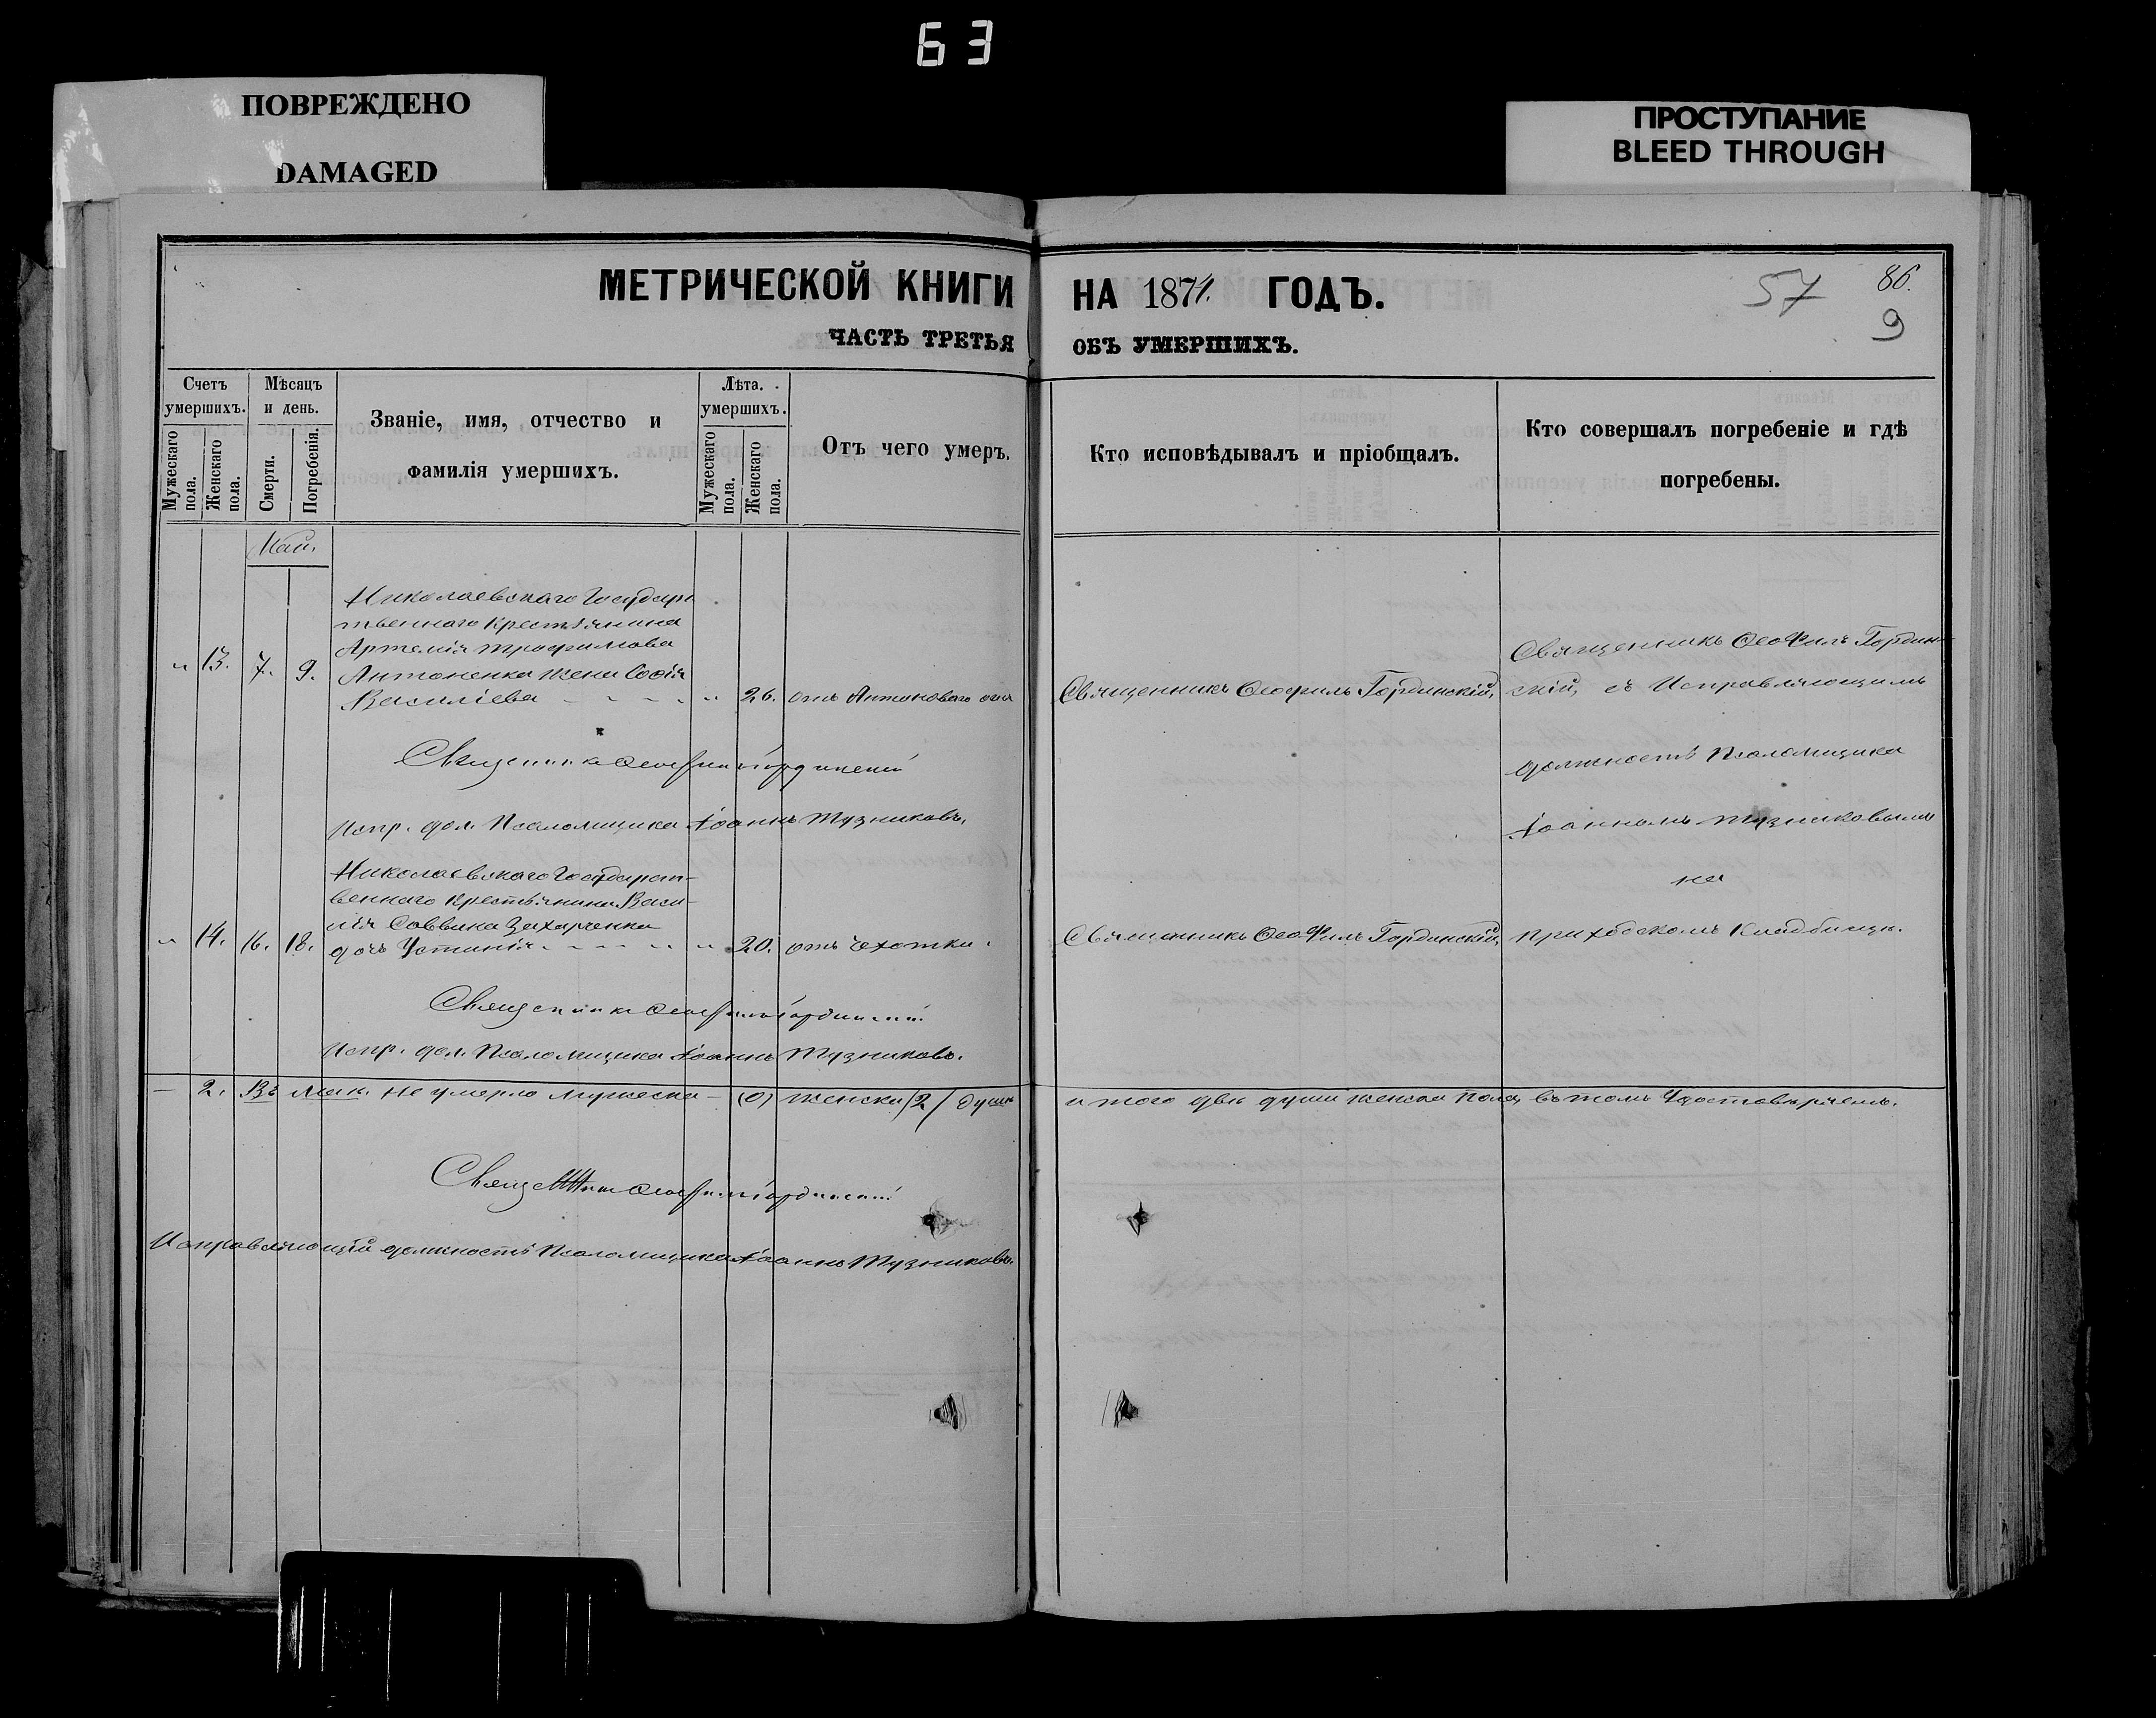 63
ПОВРЕЖДЕНО
DAMAGED
ПРОСТУПАНИЕ
BLEED THROUGH
МЕТРИЧЕСКОЙ КНИГИ НА 1871. ГОДЪ.
57 86.
9
ЧАСТЬ ТРЕТЬЯ ОБЪ УМЕРШИХЪ.
Счетъ умершихъ.
Мужескаго пола.
Женскаго пола.
Мѣсяцъ и день.
Смерти.
Погребенія.
Званіе, имя, отчество и
фамилія умершихъ.
Лѣта умершихъ.
Мужескаго пола.
Женскаго пола.
Отъ чего умеръ.
Кто исповѣдывалъ и пріобщалъ.
Кто совершалъ погребеніе и гдѣ
погребены.
Май.
Николаевскаго Государс
твеннаго Крестьянина
Артемія Трофимова
" 13. 7. 9. Антоненка жена Софія
Василіева " 26. отъ Антоноваго огня
Священникъ Ѳеофилъ Гординскій,
Священникъ Ѳеофилъ Гордин-
скій, съ Исправляющимъ
должность Псаломщика
Іоанномъ Тузниковымъ
на
приходскомъ Кладбищѣ.
Священникъ Ѳеофилъ Гординскій
Испр. дол. Псаломщика Іоаннъ Тузниковъ.
Николаевскаго Государст-
веннаго Крестьянина Васи-
лія Саввина Захарченка
" 14. 16. 18. дочь Устинія " 20. отъ чахотки.
Священникъ Ѳеофилъ Гординскій,
Священникъ Ѳеофилъ Гординскій
Испр. дол. Псаломщика Іоаннъ Тузниковъ.
— 2. Въ маѣ. не умерло мужеска — (0) женска /2/ души
итого двѣ души женска пола, въ томъ Удостовѣряемъ.
Священникъ Ѳеофилъ Гординскій
Исправляющій должность Псаломщика Іоаннъ Тузниковъ.